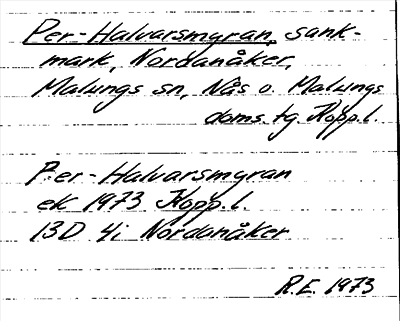 Per-Halvarsmyran, sank-
mark, Nordanåker,
Malungs sn, Nås o. Malungs
doms.tg. Kopp.l.
Per-Halvarsmyran
ek 1973 Kopp.l.
13D 4i Nordanåker
R.E. 1973